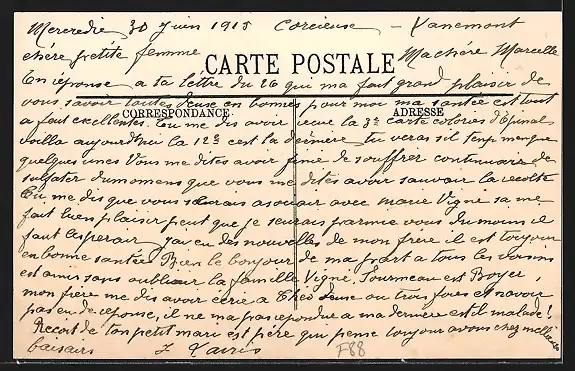 Mercredie 30 Juin 1915 Corcieuse - Vanemont
chére petite femme Machére Marcelle
CARTE POSTALE
En réponse a ta lettre du 26 qui ma fait grand plaisir de
vous savoir toutes deuse en bonnes pour moi ma santée est tout
CORRESPONDANCE ADRESSE
a fait excellentes. Tu me dis avoir recue la 3e carte colories d'Epinal
voilla aujourdhui la 12e cest la dérniere tu veras sil tenp manque
quelques unes Vous me dites avoir finie de souffrer continuare de
sulfater dumomens que vous me dites avoir sauvoir la recolte
Tu me dis que vous asoucier avec marie Vigne sa me
fait bien plaisir peut que je seurais parmie vous du moins il
faut lesperair jai eu des nouvelles de mon frére il est toujour
en bonne santée Bien le bonjour de ma part a tous les voisins
est amis sans oublier la famille Vigne, Fourneau est Boyer,
mon frére me dis avoir ecrie a Théo deuse ou trois foies et navoir
pas eu de réponse, il ne ma pas repondue a ma derniere est il malade!
Recoit de ton petit marie est pére qui pense toujour avous chez mille
baisairs J
F88